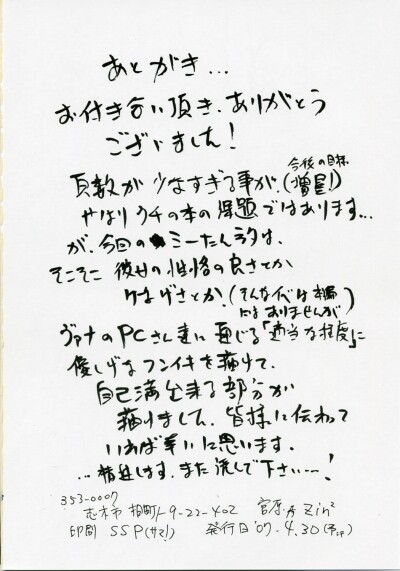 あとがき…
お付き合い頂き、ありがとう
ございました!
今後の目標
頁数が少なすぎる事が、(増量!)
やはりウチの本の課題ではあります…
が、今回のミーたんネタは、
そこそこ 彼女の性格の良さとか
けなげさとか、(そんな〆は本編
にはありませんが)
ヴァナのPCさん達に通じる「適当な程度」に
優しげなフンイキを描けて、
自己満出来る部分が
描けました、皆様に伝わって
いれば幸いに思います。
…精進します、また流して下さい…!
353-0007
志木市 柏町 1-9-22-402 Zin²
印刷 SSP 発行日'07.4.30